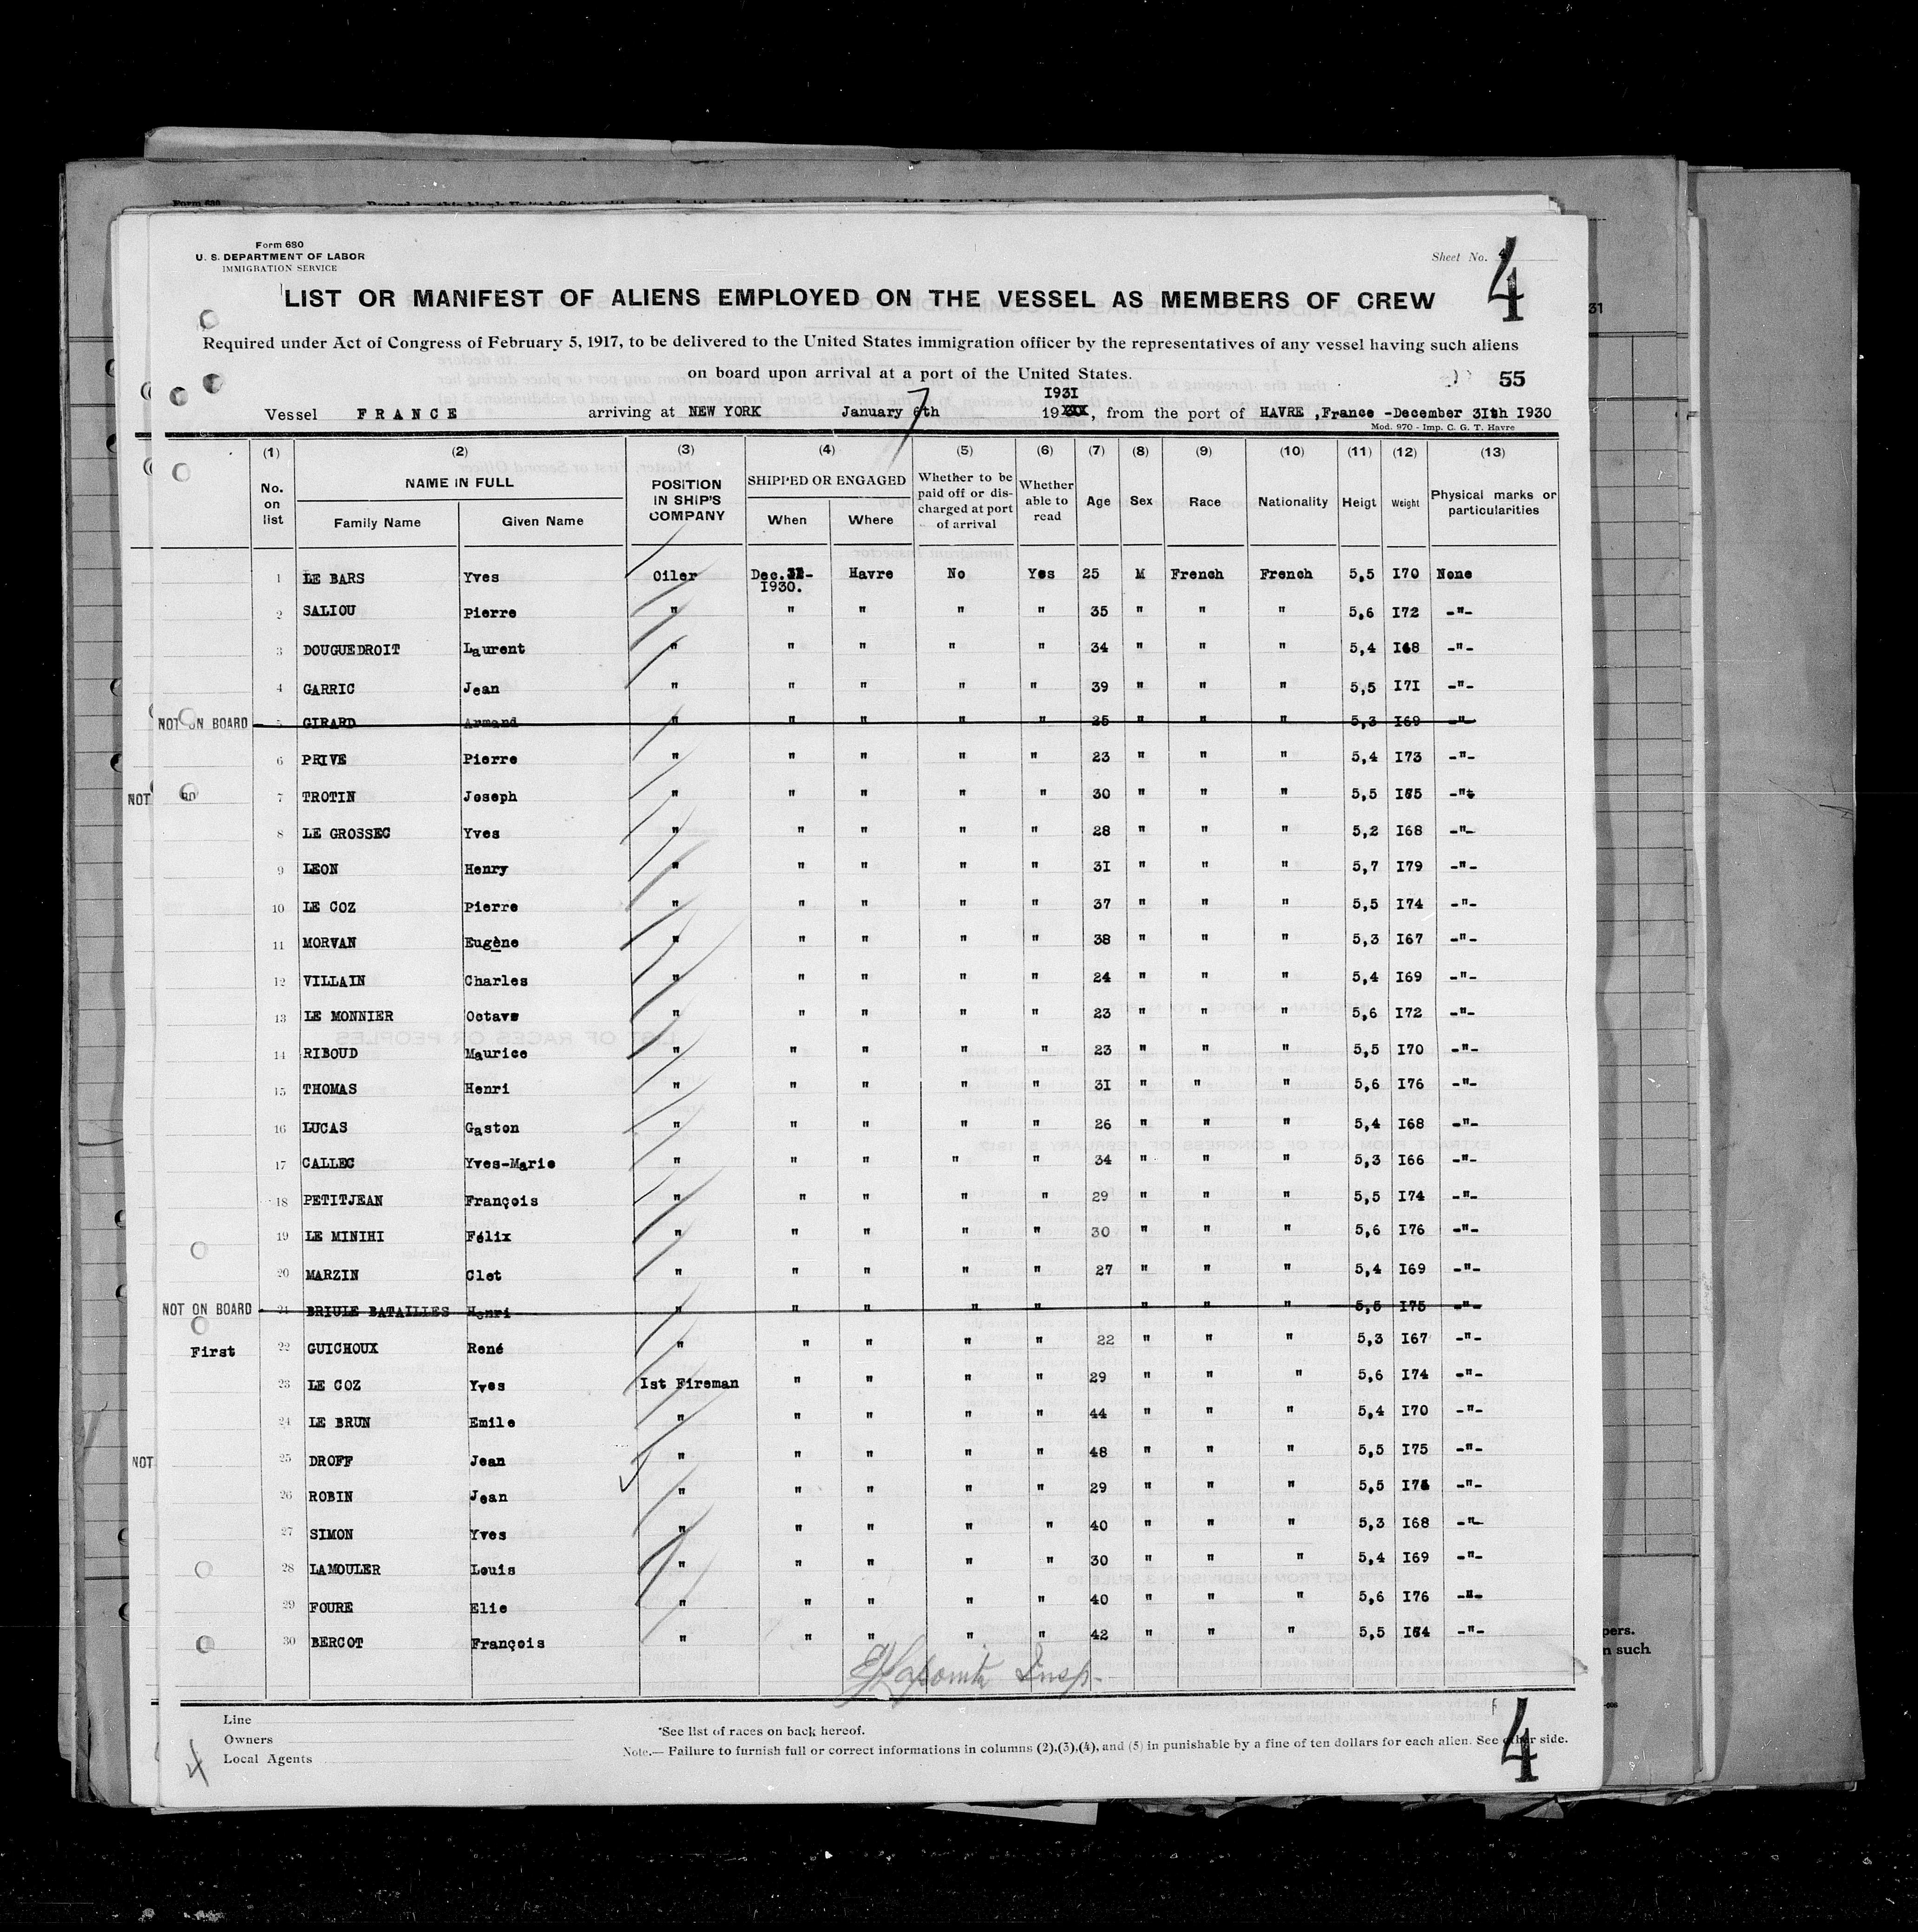 Form 680
U. S. DEPARTMENT OF LABOR
IMMIGRATION SERVICE
Sheet No. 4
4
LIST OR MANIFEST OF ALIENS EMPLOYED ON THE VESSEL AS MEMBERS OF CREW
Required under Act of Congress of February 5, 1917, to be delivered to the United States immigration officer by the representatives of any vessel having such aliens
on board upon arrival at a port of the United States.
55
1931
Vessel FRANCE arriving at NEW YORK January 6th 7 19 , from the port of HAVRE ,France -December 3Ith I930
Mod. 970 - Imp. C. G. T. Havre
(1) (2) (3) (4) (5) (6) (7) (8) (9) (10) (11) (12) (13)
No. on list NAME IN FULL Family Name Given Name POSITION IN SHIP'S COMPANY SHIPPED OR ENGAGED When Where Whether to be paid off or discharged at port of arrival Whether able to read Age Sex Race Nationality Heigt Weight Physical marks or particularities
1 LE BARS Yves Oiler Dec.31- I930. Havre No Yes 25 M French French 5,5 I70 None
2 SALIOU Pierre " " " " " 35 " " " 5,6 I72 -"-
3 DOUGUEDROIT Laurent " " " " " 34 " " " 5,4 I68 -"-
4 GARRIC Jean " " " " " 39 " " " 5,5 I7I -"-
NOT ON BOARD 5 GIRARD Armand " " " " " 25 " " " 5,3 I69 -"-
6 PRIVE Pierre " " " " " 23 " " " 5,4 I73 -"-
NOT 7 TROTIN Joseph " " " " " 30 " " " 5,5 I65 -"-
8 LE GROSSEC Yves " " " " " 28 " " " 5,2 I68 -"-
9 LEON Henry " " " " " 3I " " " 5,7 I79 -"-
10 LE COZ Pierre " " " " " 37 " " " 5,5 I74 -"-
11 MORVAN Eugène " " " " " 38 " " " 5,3 I67 -"-
12 VILLAIN Charles " " " " " 24 " " " 5,4 I69 -"-
13 LE MONNIER Octave " " " " " 23 " " " 5,6 I72 -"-
14 RIBOUD Maurice " " " " " 23 " " " 5,5 I70 -"-
15 THOMAS Henri " " " " " 3I " " " 5,6 I76 -"-
16 LUCAS Gaston " " " " " 26 " " " 5,4 I68 -"-
17 CALLEC Yves-Marie " " " " " 34 " " " 5,3 I66 -"-
18 PETITJEAN François " " " " " 29 " " " 5,5 I74 -"-
19 LE MINIHI Félix " " " " " 30 " " " 5,6 I76 -"-
20 MARZIN Clet " " " " " 27 " " " 5,4 I69 -"-
NOT ON BOARD 21 BRIULE BATAILLES Henri " " " " " " " " 5,5 I75 -"-
22 GUICHOUX René " " " " " 22 " " " 5,3 I67 -"-
First
23 LE COZ Yves Ist Fireman " " " " 29 " " " 5,6 I74 -"-
24 LE BRUN Emile " " " " " 44 " " " 5,4 I70 -"-
NOT 25 DROFF Jean " " " " " 48 " " " 5,5 I75 -"-
26 ROBIN Jean " " " " " 29 " " " 5,5 -"-
27 SIMON Yves " " " " " 40 " " " 5,3 I68 -"-
28 LAMOULER Louis " " " " " 30 " " " 5,4 I69 -"-
29 FOURE Elie " " " " " 40 " " " 5,6 I76 -"-
30 BERCOT François " " " " " 42 " " " 5,5 -"-
Insp.
Line
Owners
Local Agents
*See list of races on back hereof.
Note.— Failure to furnish full or correct informations in columns (2),(3),(4), and (5) in punishable by a fine of ten dollars for each alien. See other side.
4